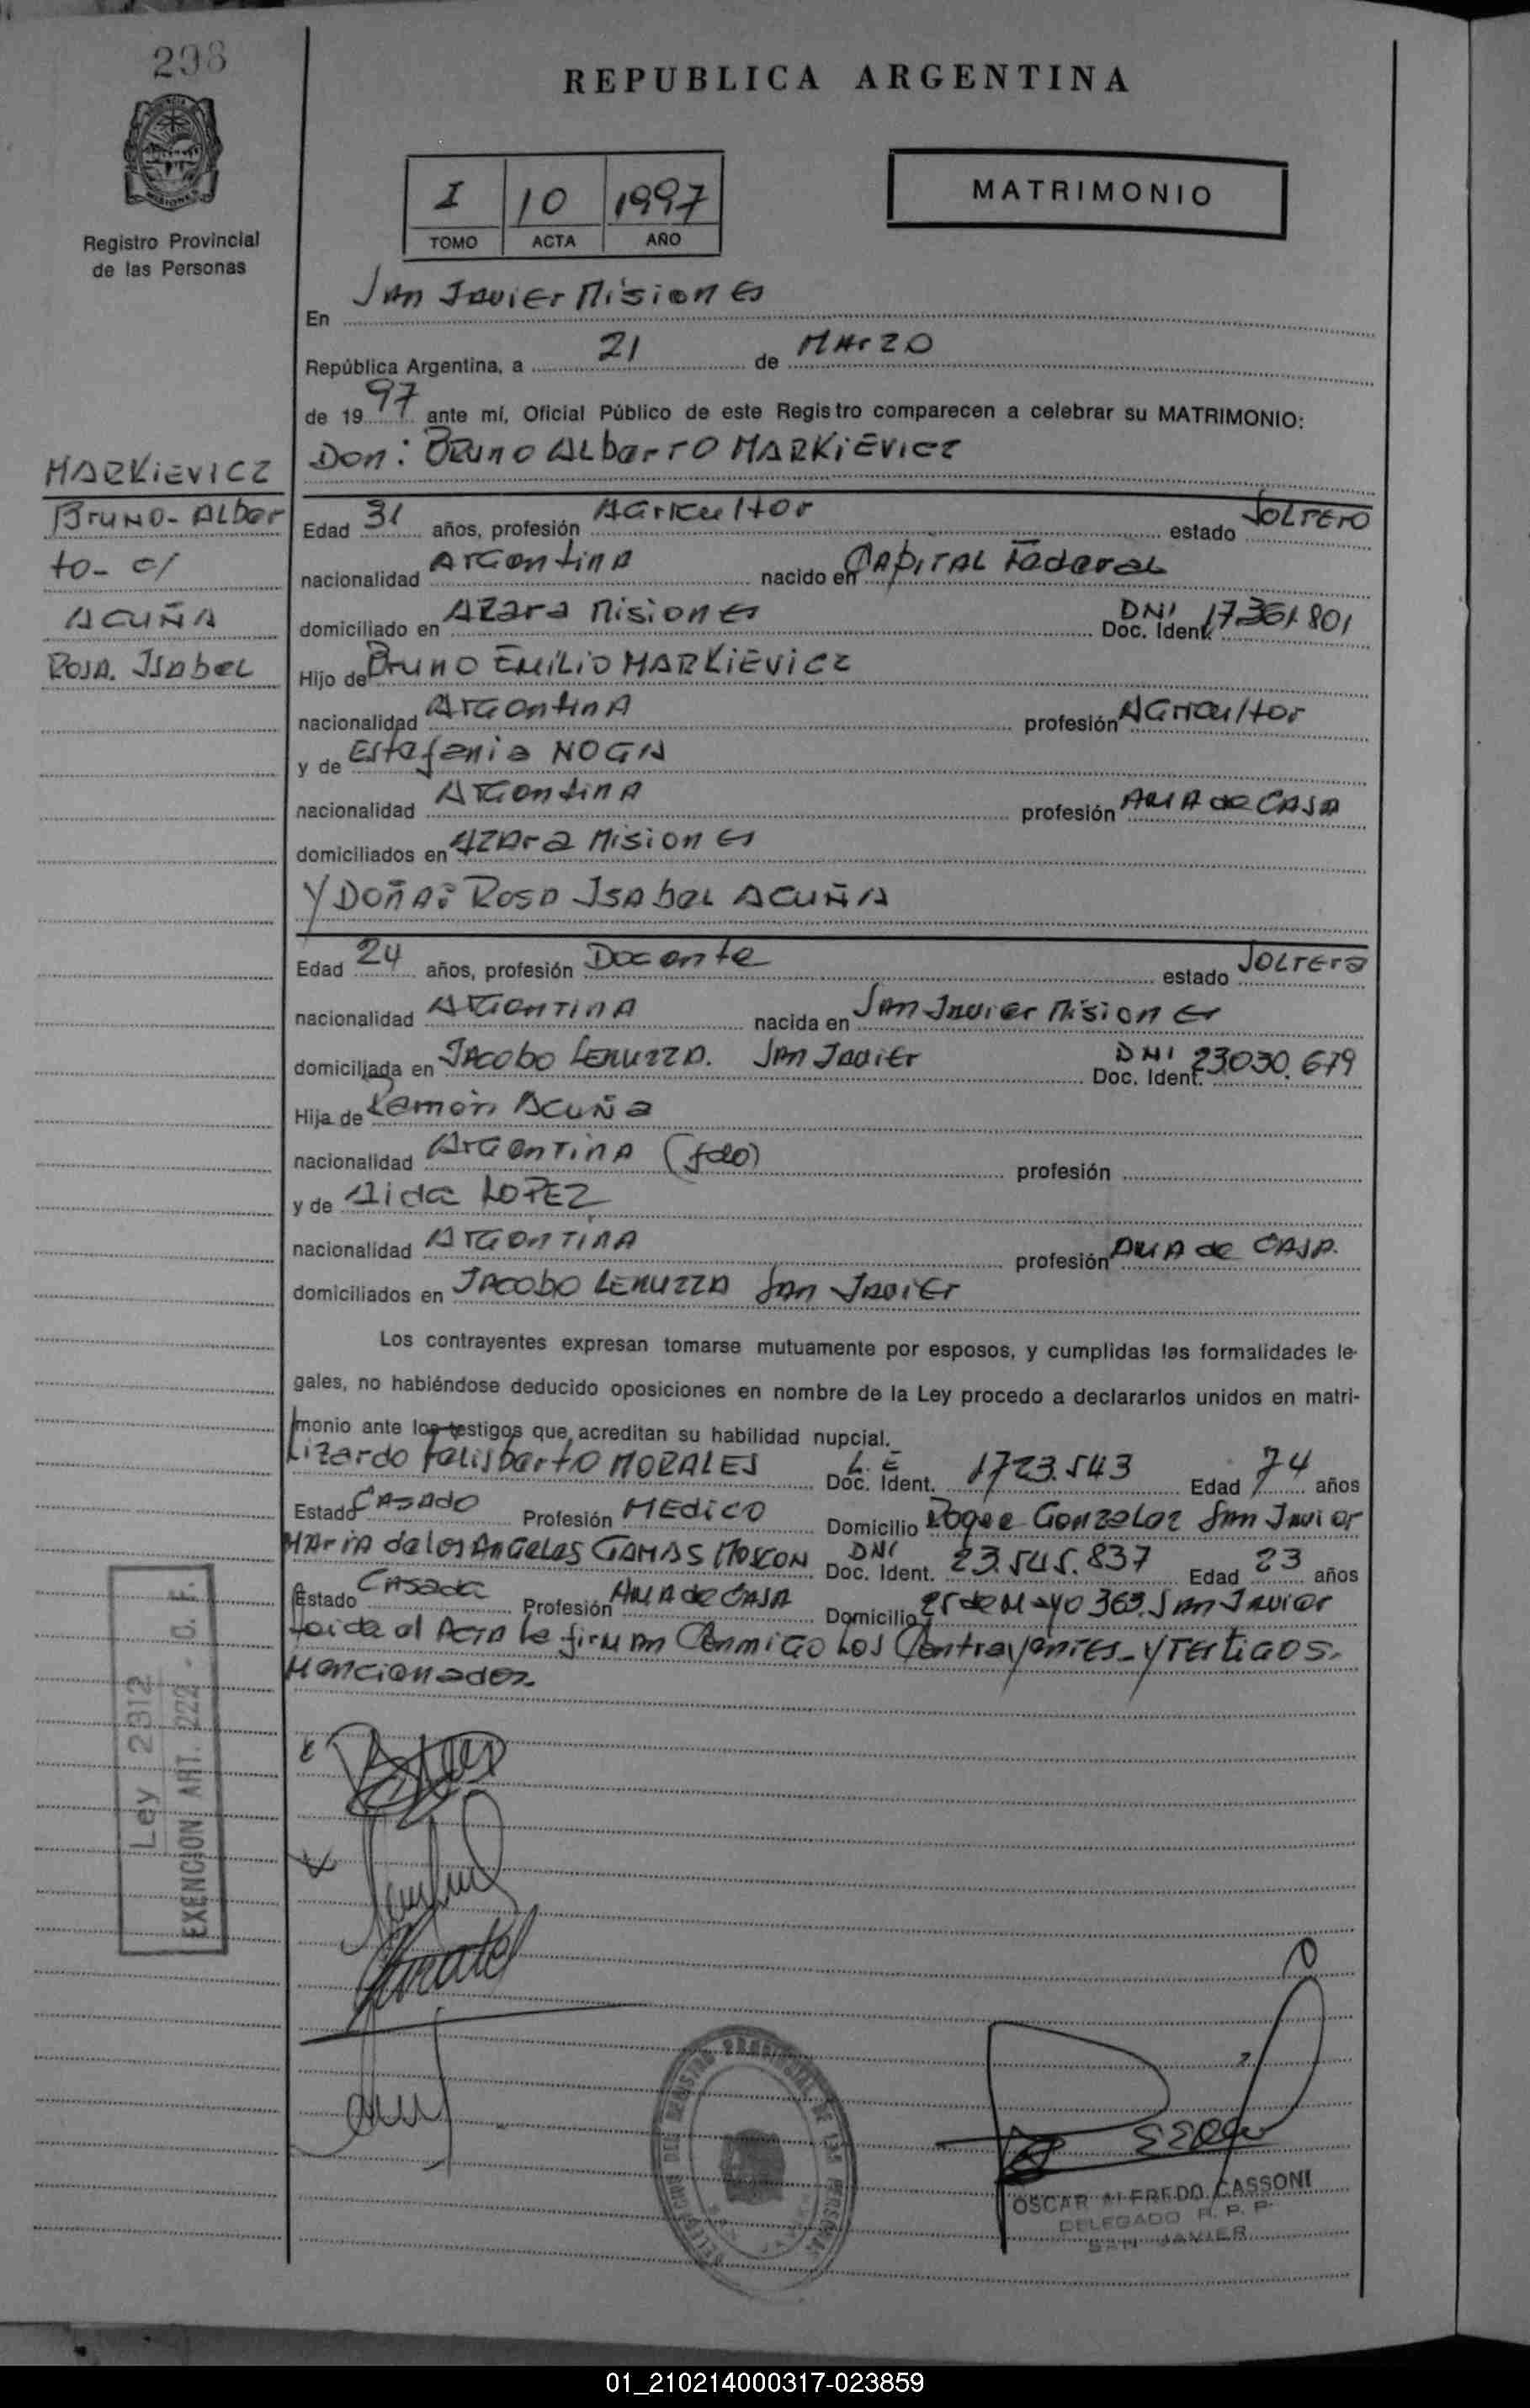 298
REPUBLICA ARGENTINA
MISIONES
Registro Provincial
de las Personas
I 10 1997
TOMO ACTA AÑO
MATRIMONIO
En San Javier Misiones
República Argentina, a 21 de Marzo
de 1997 ante mí, Oficial Público de este Registro comparecen a celebrar su MATRIMONIO:
MARKIEVICZ
Bruno-Alber
to- c/
ACUÑA
Rosa. Isabel
Don: Bruno Alberto MARKIEVICZ
Edad 31 años, profesión Agricultor estado Soltero
nacionalidad Argentina nacido en Capital Federal
domiciliado en Azara Misiones DNI Doc. Ident. 17.361.801
Hijo de Bruno Emilio MARKIEVICZ
nacionalidad Argentina profesión Agricultor
y de Estefania NOGA
nacionalidad Argentina profesión Ama de Casa
domiciliados en Azara Misiones
Y DOÑA: Rosa Isabel ACUÑA
Edad 24 años, profesión Docente estado Soltera
nacionalidad Argentina nacida en San Javier Misiones
domiciliada en Jacobo San Javier DNI Doc. Ident. 23.030.679
Hija de Ramón Acuña
nacionalidad Argentina (fdo) profesión
y de Aida LOPEZ
nacionalidad Argentina profesión Ama de Casa.
domiciliados en Jacobo San Javier
Los contrayentes expresan tomarse mutuamente por esposos, y cumplidas las formalidades le-
gales, no habiéndose deducido oposiciones en nombre de la Ley procedo a declararlos unidos en matri-
monio ante los testigos que acreditan su habilidad nupcial.
Lizardo Felisberto MORALES L.E Doc. Ident. 1723.543 Edad 74 años
Estado Casado Profesión Medico Domicilio Roque Gonzalez San Javier
Maria de los Angeles GAMAS DNI Doc. Ident. 23.545.837 Edad 23 años
Estado Casada Profesión Ama de Casa Domicilio 25 de Mayo 369. San Javier
Leida el Acta la firman Conmigo los Contrayentes-y Testigos.
Mencionados.
Ley 2312
EXENCION ART. 222 - C. F.
DELEGACION DEL REGISTRO PROVINCIAL DE LAS PERSONAS
OSCAR ALFREDO CASSONI
DELEGADO R. P. P.
SAN JAVIER
01_210214000317-023859